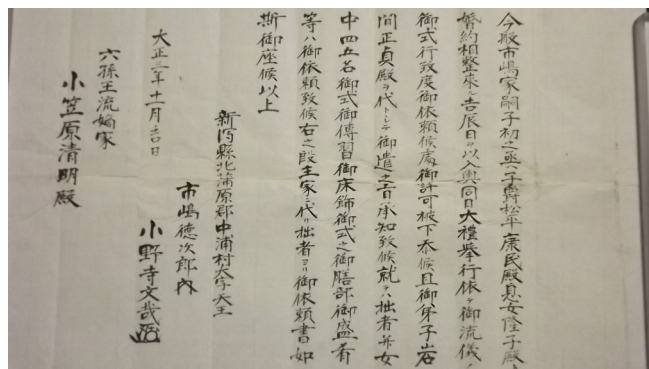 今般市嶋家嗣子初之丞ヘ子爵松平康民殿息女隆子殿ト
婚約相整来ル吉辰日ヲ以入輿同日大禮挙行依テ御流儀ノ
御式行致度御依頼候處御許可被下忝候且御弟子岩
間正貞殿ヲ代トシテ御遣之旨承知致候就テハ拙者并女
中四五名御式御傳習御床飾御式之御膳部御盛肴
等ハ御依頼致候右之段主家ニ代リ拙者ヨリ御依頼書如
斯御座候以上
新潟縣北蒲原郡中浦村大字天王
市嶋徳次郎内
小野寺文哉
大正三年十一月吉日
六孫王流嫡家
小笠原清明殿